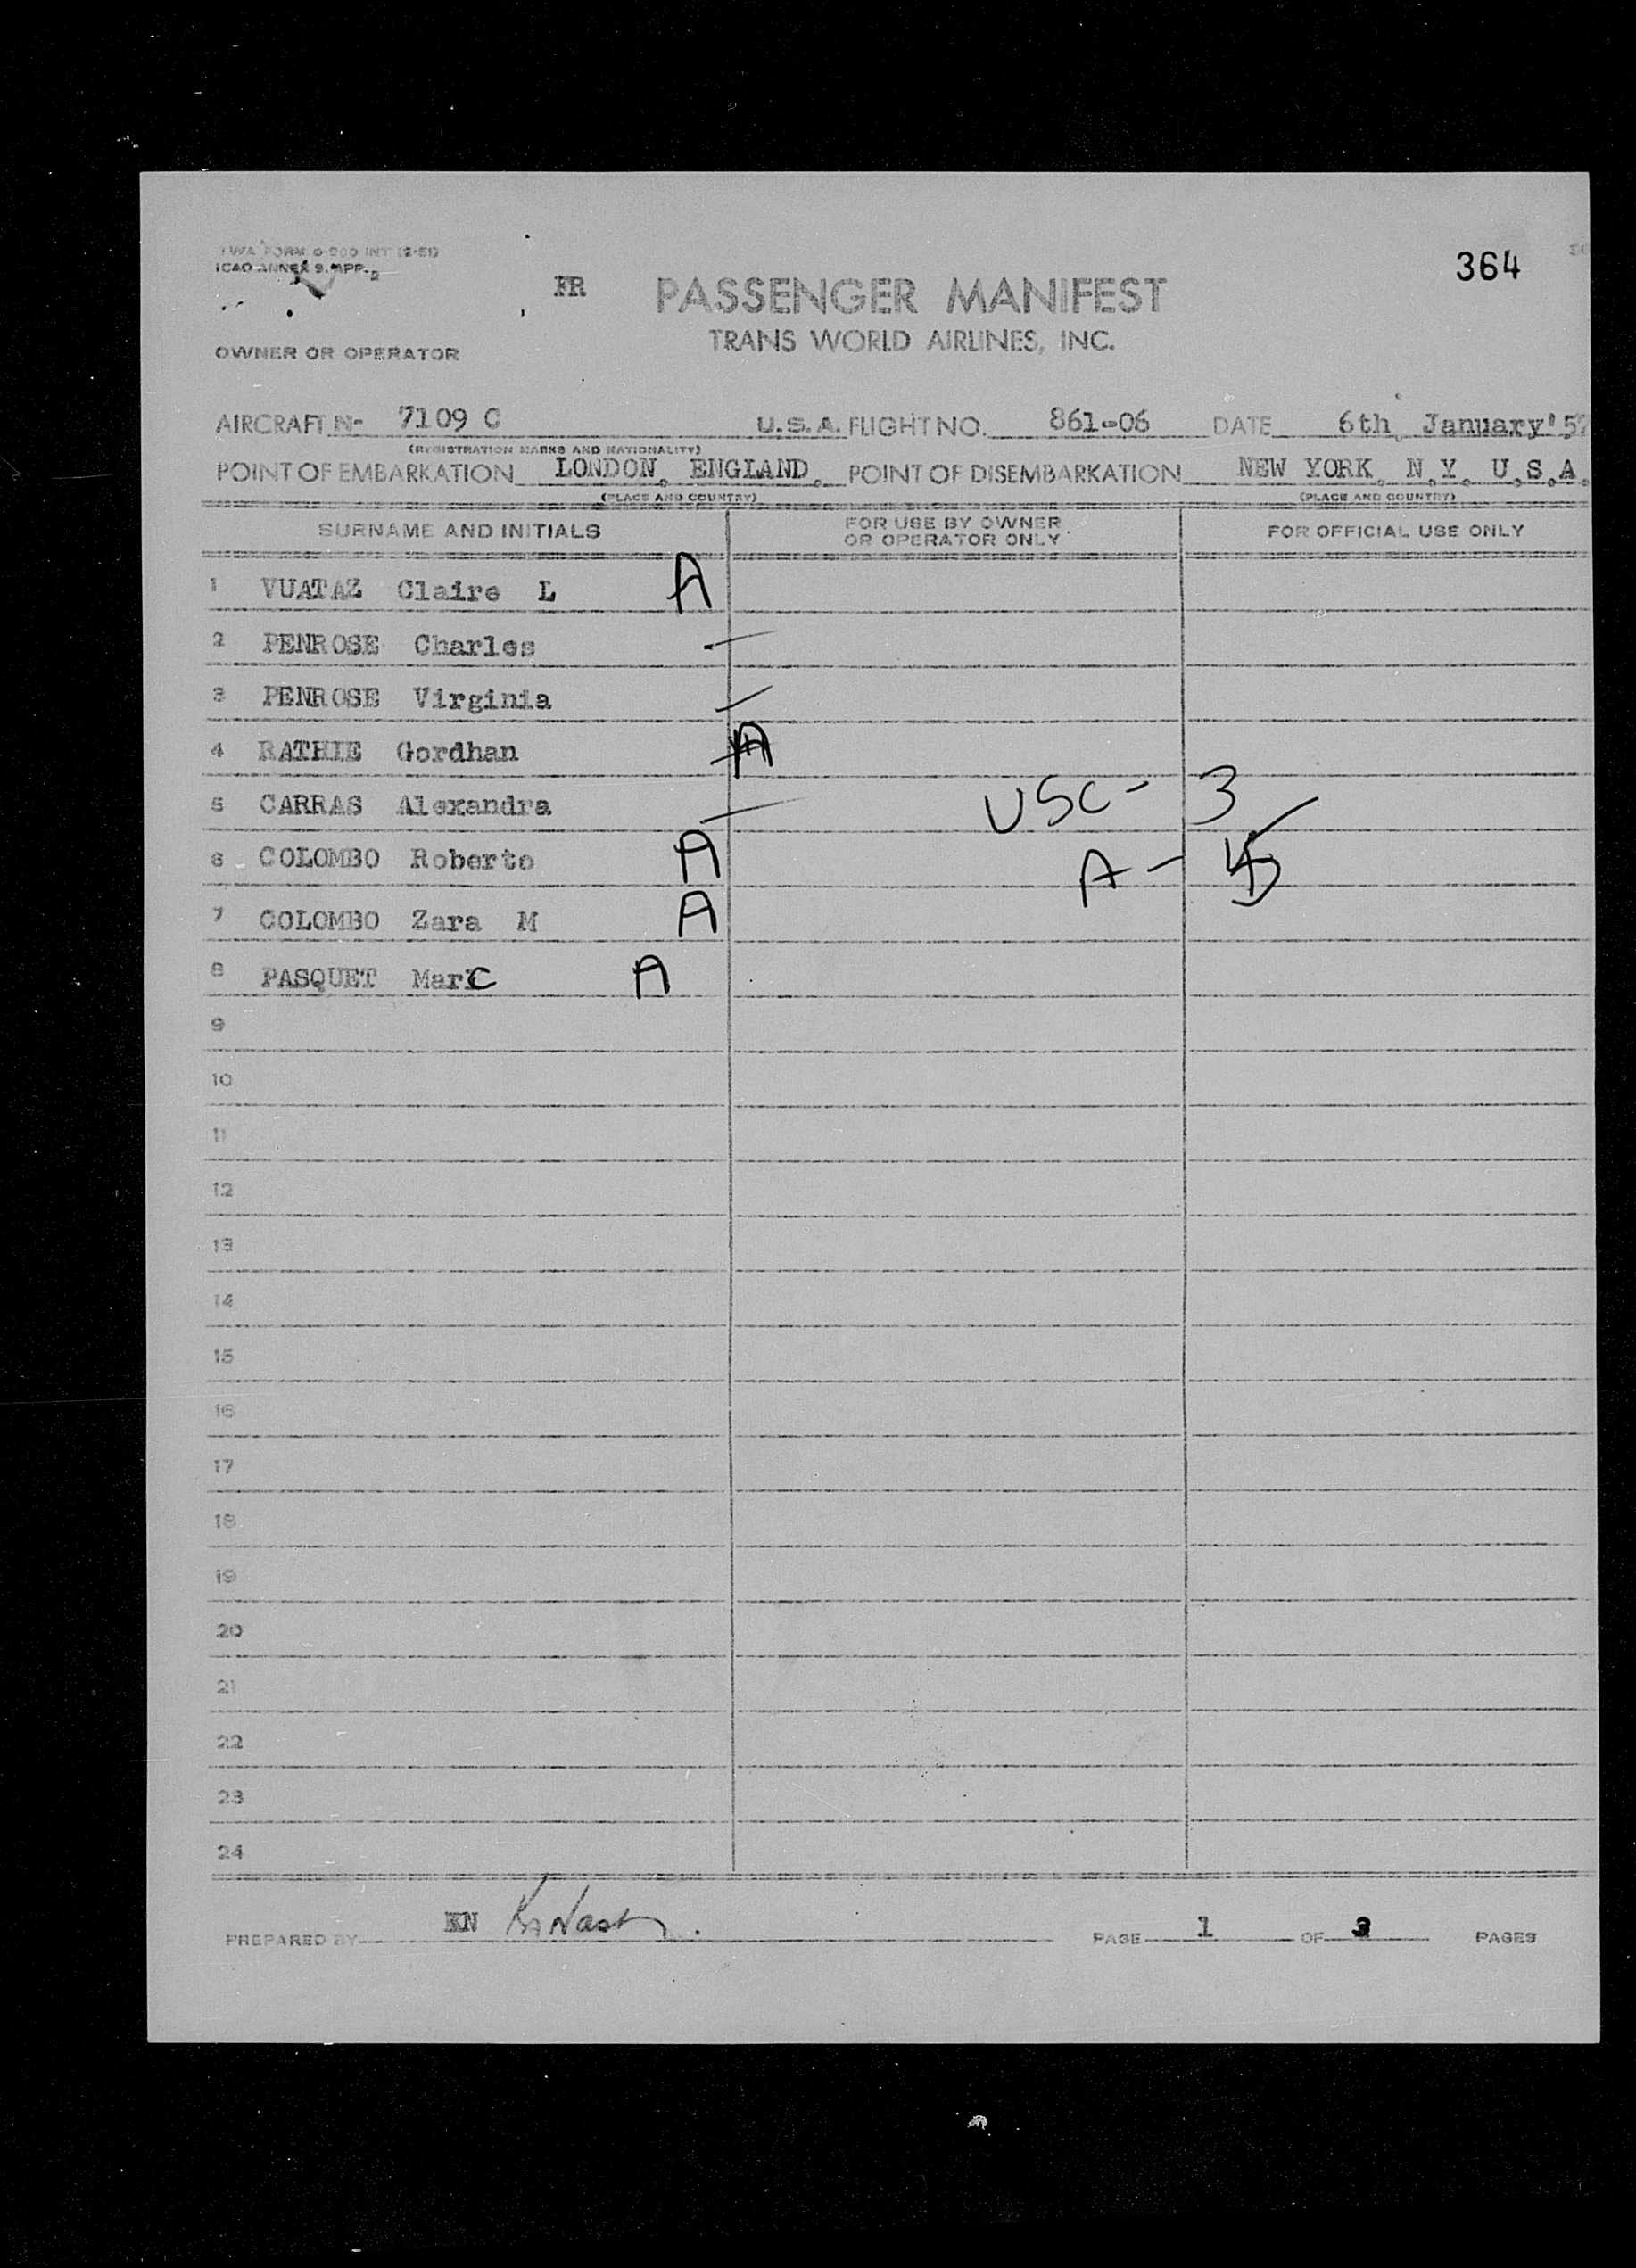 TWA FORM O-200 INT (2-51)
ICAO ANNEX 9. APP. 2
FR PASSENGER MANIFEST 364
TRANS WORLD AIRLINES, INC.
OWNER OR OPERATOR
AIRCRAFT N- 7109 C U.S.A. FLIGHT NO. 861-06 DATE 6th, January'57
(REGISTRATION MARKS AND NATIONALITY)
POINT OF EMBARKATION LONDON, ENGLAND, POINT OF DISEMBARKATION NEW YORK, N,Y, U,S,A,
(PLACE AND COUNTRY) (PLACE AND COUNTRY)
SURNAME AND INITIALS FOR USE BY OWNER OR OPERATOR ONLY FOR OFFICIAL USE ONLY
1 VUATAZ Claire L A
2 PENROSE Charles
3 PENROSE Virginia
4 RATHIE Gordhan A
5 CARRAS Alexandra USC- 3
6 COLOMBO Roberto A A - 5
7 COLOMBO Zara M A
8 PASQUET Marc A
9
10
11
12
13
14
15
16
17
18
19
20
21
22
23
24
PREPARED BY KN PAGE 1 OF 3 PAGES